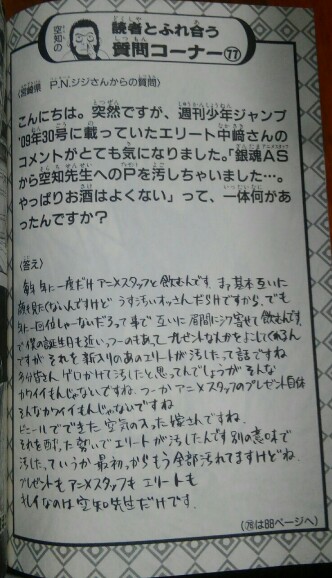 空知の
読者とふれ合う
質問コーナー77
〈宮崎県　P.N.ジジさんからの質問〉
こんにちは。突然ですが、週刊少年ジャンプ
'09年30号に載っていたエリート中﨑さんの
コメントがとても気になりました。「銀魂AS
から空知先生へのPを汚しちゃいました…。
やっぱりお酒はよくない」って、一体何があ
ったんですか？
〈答え〉
毎年 年に一度だけアニメスタッフと飲むんです。まァ基本互いに
顔見たくないんですけど うす汚いオッさんだらけですから。でも
年に一回位しゃーないだろって事で互いに眉間にシワ寄せて飲むんです
で僕の誕生日も近いっつーのもあって プレゼントなんかをよくくれるん
ですが それを新入りのあのエリートが汚したって話ですね
多分皆さん ゲロかけて汚したと思ってんでしょうが そんな
カワイイもんじゃないですね。つーか アニメスタッフのプレゼント自体
そんなカワイイもんじゃないですね
ビニールでできた 空気の入った嫁さんですね。
それを酔った勢いでエリートが汚したんです 別の意味で
汚した。ていうか 最初っからもう全部汚れてますけどね。
プレゼントも アニメスタッフも エリートも
キレイなのは空知先生だけです。
(78は88ページへ)